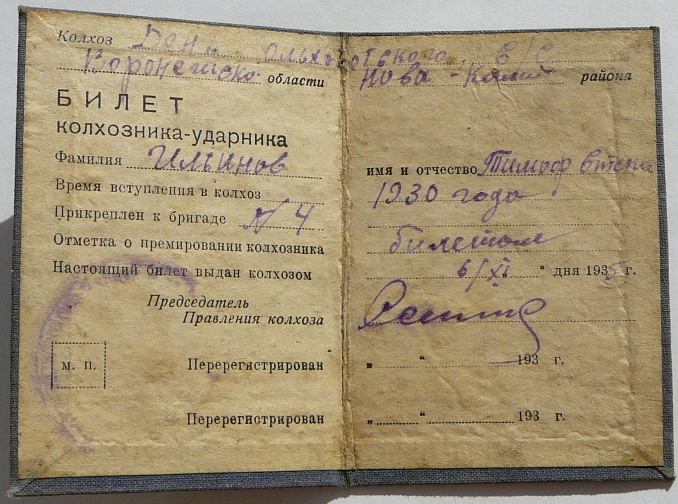 Колхоз Ольховатского с/с
Воронежско области Нова-Калит района
БИЛЕТ
КОЛХОЗНИКА-УДАРНИКА
Фамилия Ильинов имя и отчество Тимоф
Время вступления в колхоз 1930 года
Прикреплен к бригаде N 4
Отметка о премировании колхозника билетом
Настоящий билет выдан колхозом 6/XI " дня 193 г.
Председатель
Правления колхоза
М. П. Перерегистрирован „ “ 193 г.
Перерегистрирован „ “ 193 г.